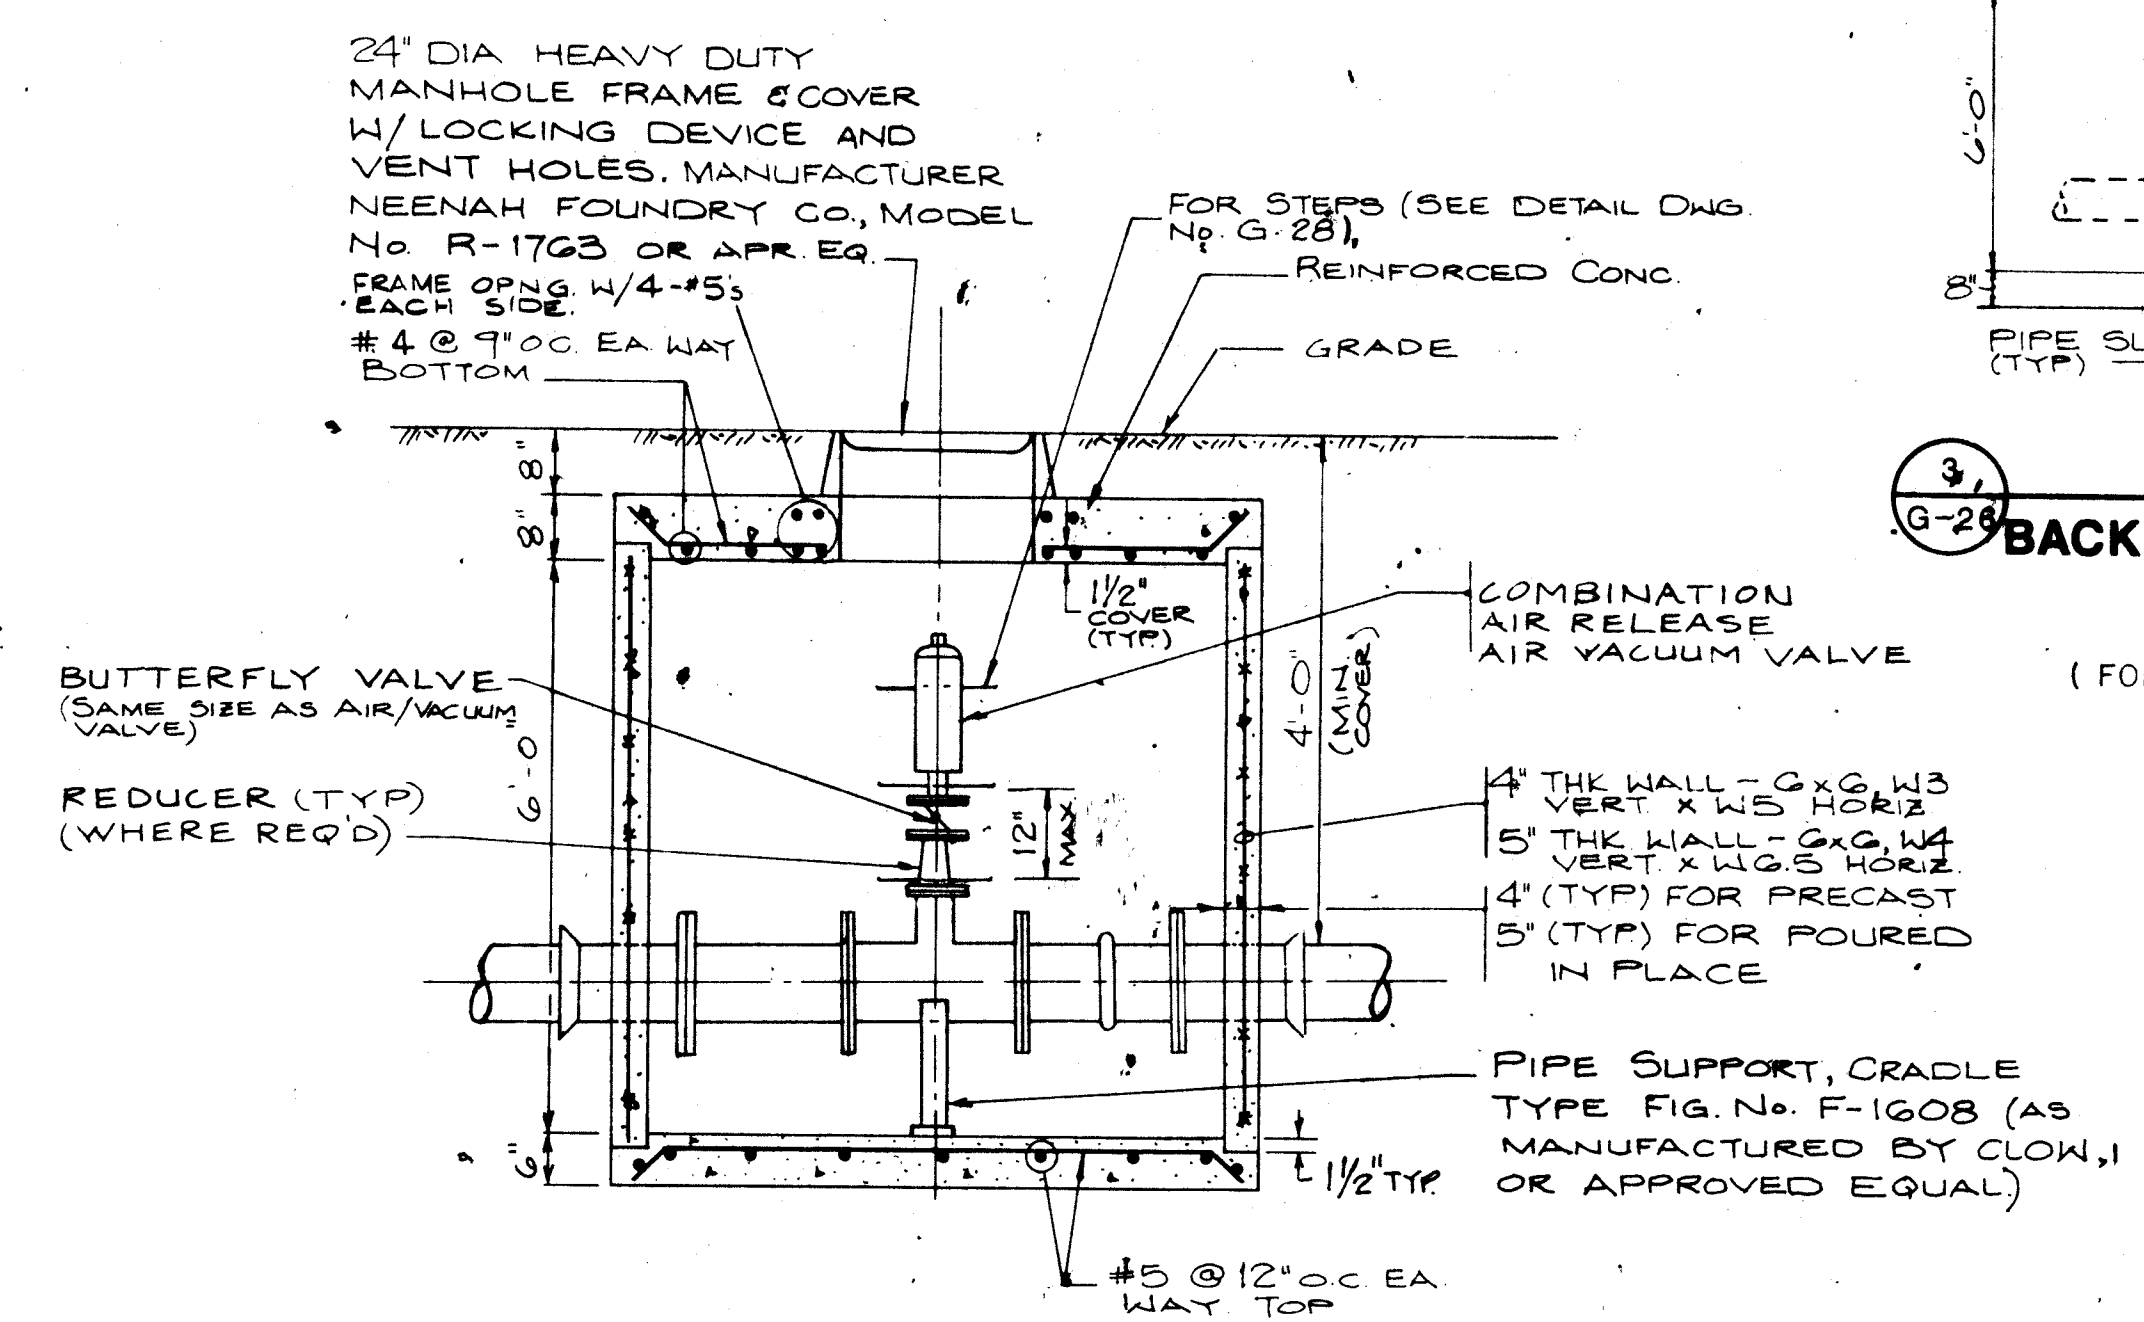 24" DIA HEAVY DUTY
MANHOLE FRAME & COVER
W/ LOCKING DEVICE AND
VENT HOLES. MANUFACTURER
NEENAH FOUNDRY CO., MODEL
No. R-1763 OR APR. EQ.
FRAME OPNG. W/4-#5's
EACH SIDE.
#4 @ 9" O.C. EA. WAY
BOTTOM
FOR STEPS (SEE DETAIL DWG.
No. G-28),
REINFORCED CONC.
GRADE
6'-0"
8"
PIPE SL
(TYP)
3
G-26
BACK
(FO
8"
8"
1 1/2"
COVER
(TYP.)
COMBINATION
AIR RELEASE
AIR VACUUM VALVE
4'-0"
(MIN.
COVER)
BUTTERFLY VALVE
(SAME SIZE AS AIR/VACUUM
VALVE)
6'-0"
REDUCER (TYP)
(WHERE REQ'D)
12"
MAX
4" THK WALL - 6x6, W3
VERT. x W5 HORIZ.
5" THK WALL - 6x6, W4
VERT. x W6.5 HORIZ.
4" (TYP) FOR PRECAST
5" (TYP.) FOR POURED
IN PLACE
PIPE SUPPORT, CRADLE
TYPE FIG. No. F-1608 (AS
MANUFACTURED BY CLOW,
OR APPROVED EQUAL)
6"
1 1/2" TYP.
#5 @ 12" O.C. EA.
WAY TOP